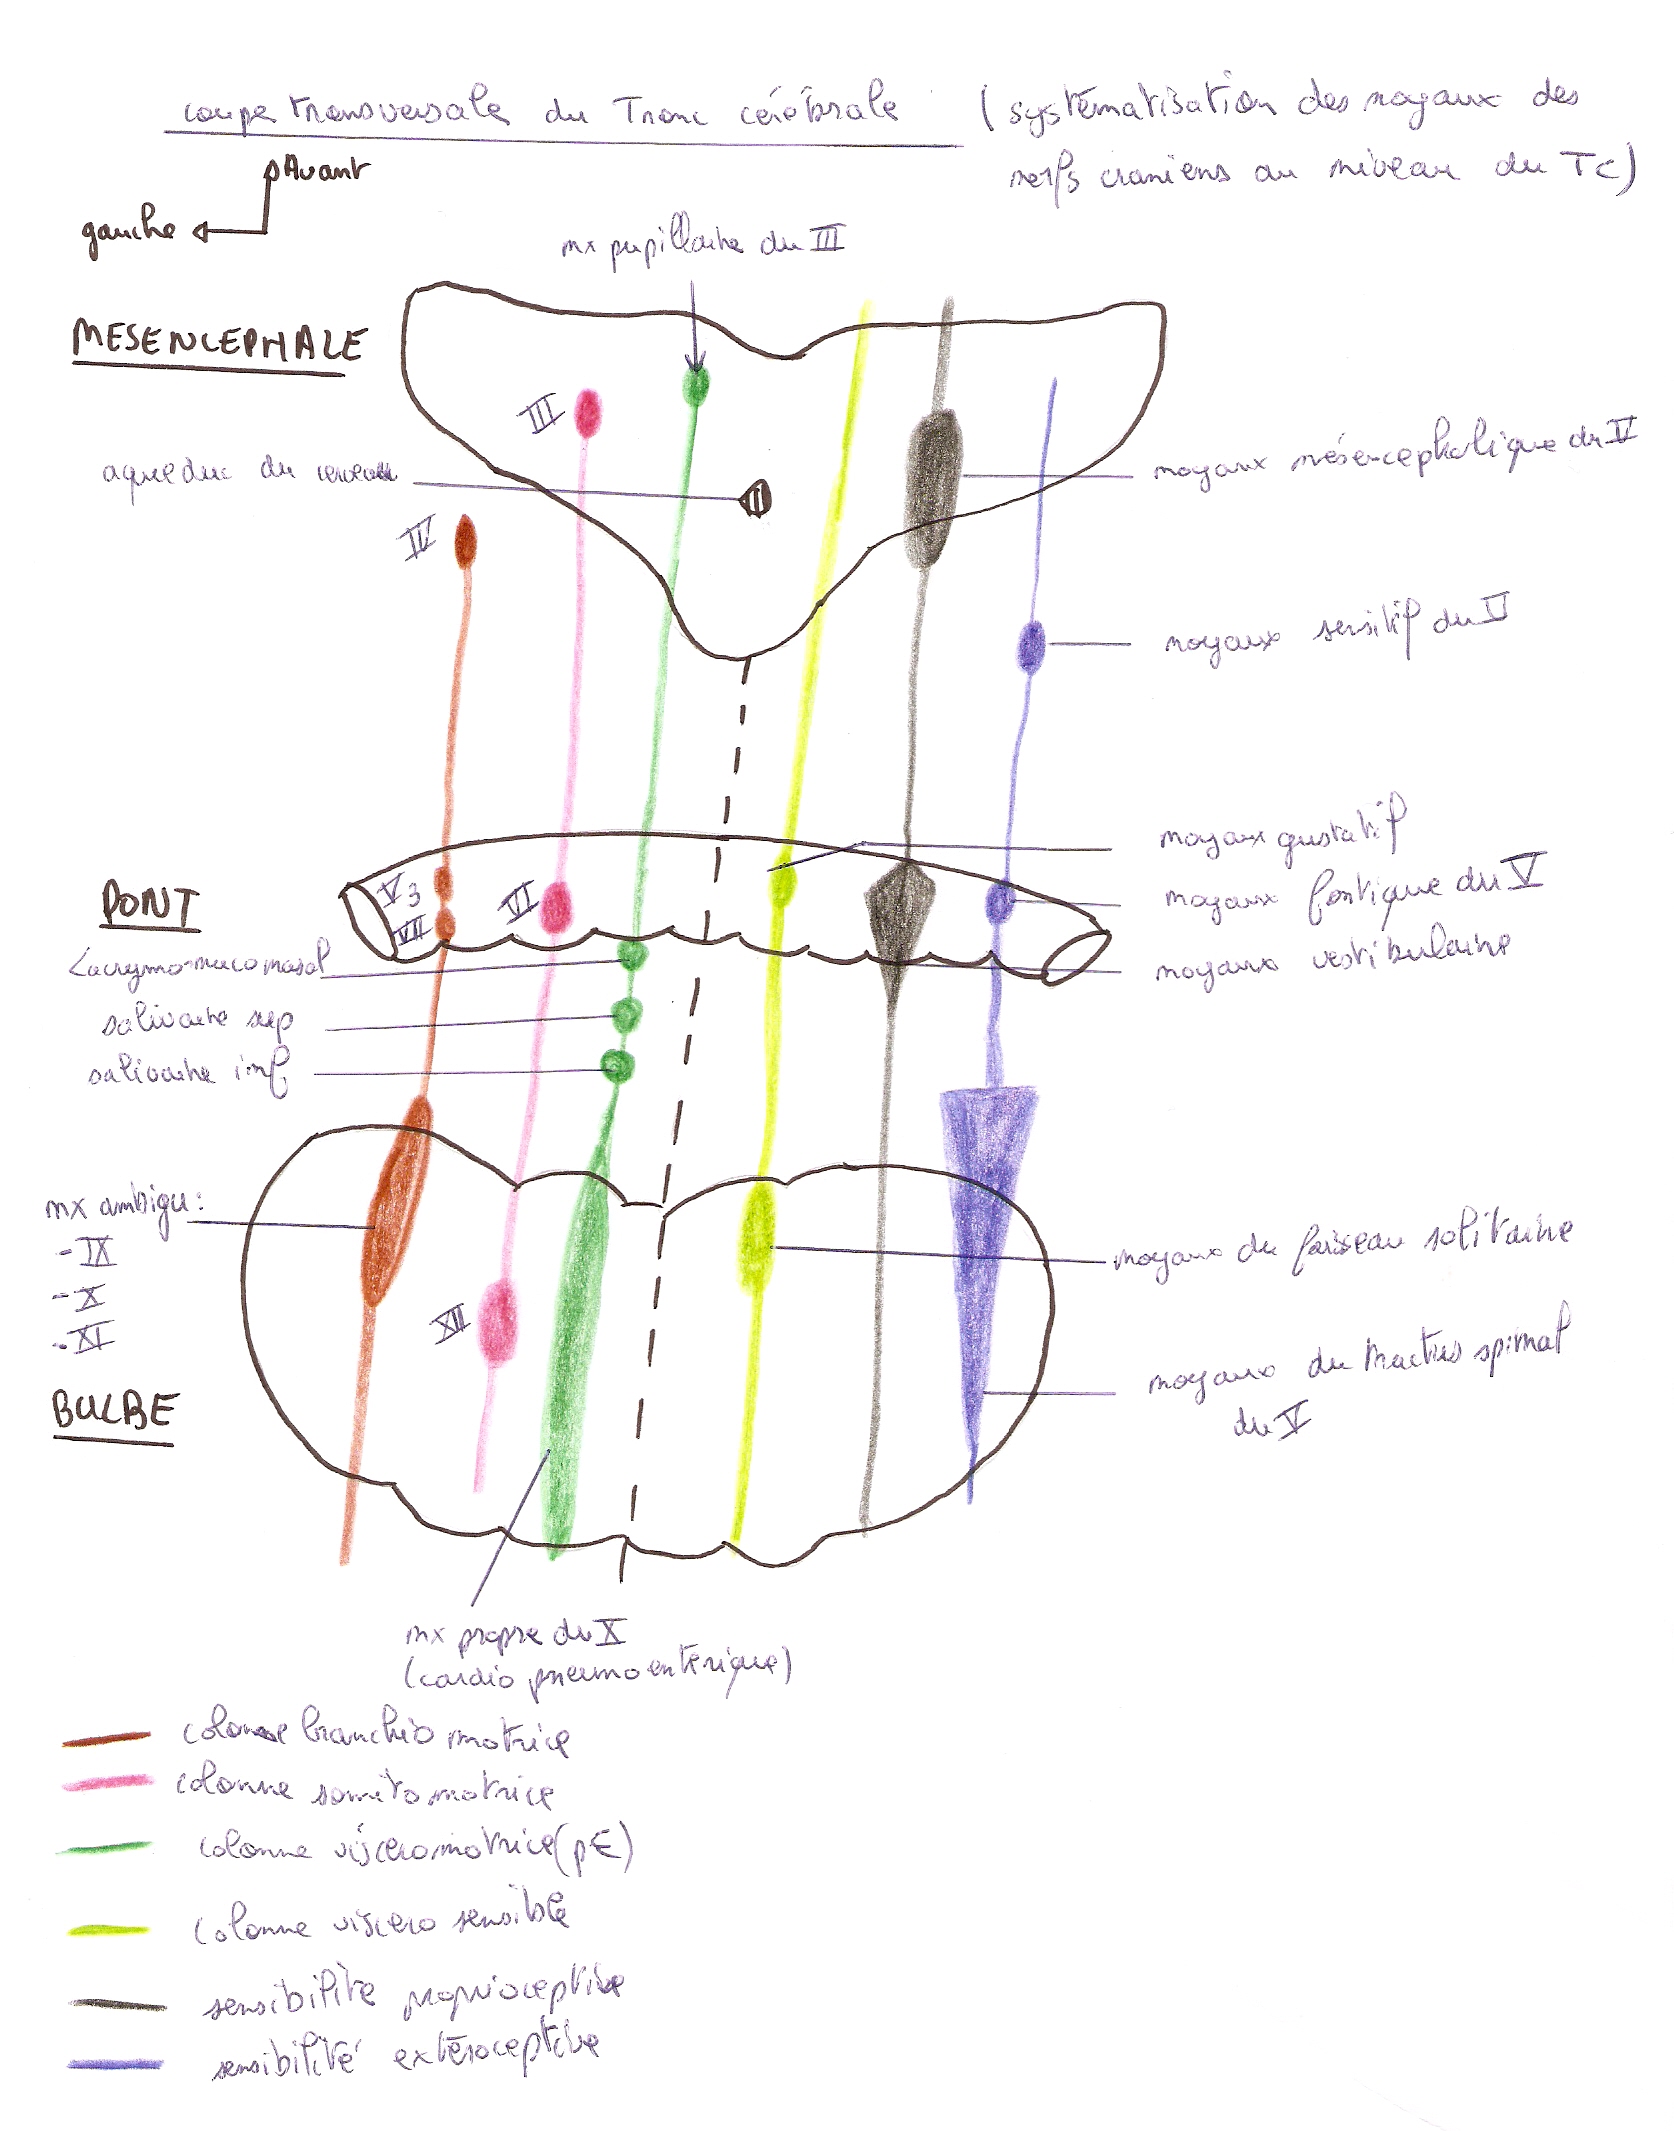 coupe transversale du Tronc cérébrale (systématisation des noyaux des
nerfs craniens au niveau du TC)
Avant
gauche
nx pupillaire du III
MESENCEPHALE
III
aqueduc du cerveau
noyaux mésencephalique du V
IV
noyaux sensitif du V
noyaux gustatif
PONT
V3
VI
VII
noyaux pontique du V
Lacrymo-muco nasal
noyaux vestibulaire
salivaire sup
salivaire inf
nx ambigu:
- IX
- X
- XI
noyaux du faisseau solitaire
XII
BULBE
noyaux du tractus spinal
du V
nx propre du X
(cardio pneumo entérique)
colonne branchio motrice
colonne somito motrice
colonne viscero motrice (pΣ)
colonne viscero sensible
sensibilité proprioceptive
sensibilité extéroceptive